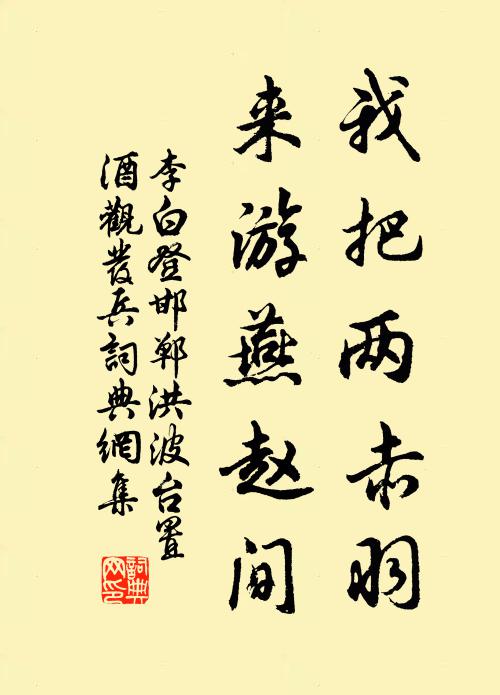 我把两赤羽
来游燕赵间
李白登邯郸洪波台置
酒觀發兵詞典網集
詞典网印